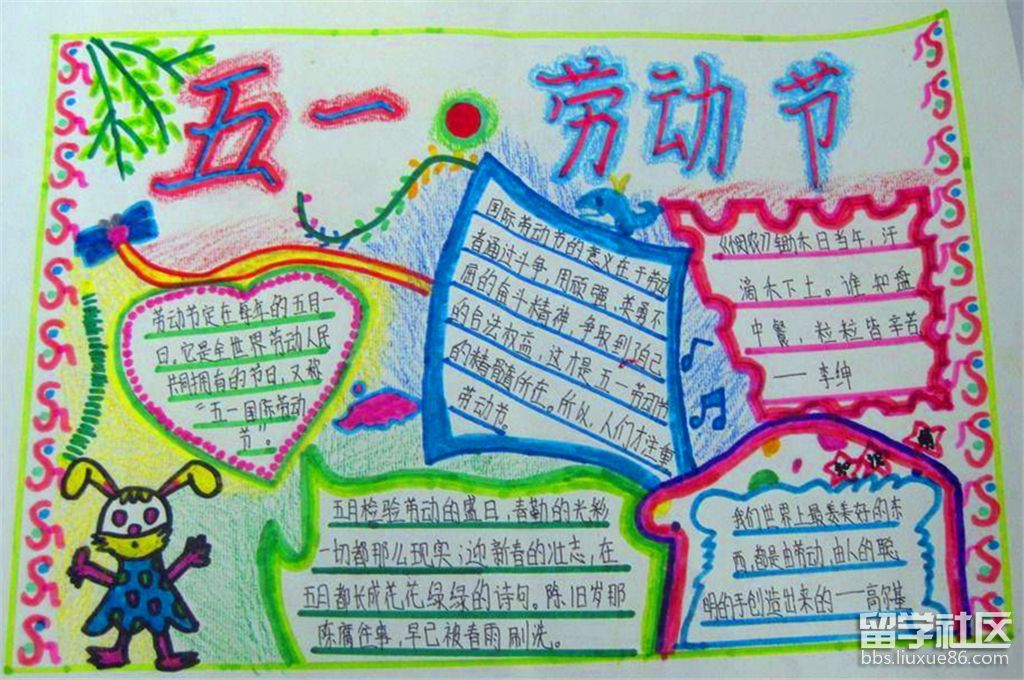 五一 劳动节
劳动节定在每年的五月一
日。它是全世界劳动人民
共同拥有的节日,又被
“五一国际劳动
节”。
国际劳动节的意义在于劳动
者通过斗争,用顽强、英勇不
屈的奋斗精神,争取到了自己
的合法权益,这才是五一劳动节
的精髓所在。所以,人们才注重
劳动节。
《悯农》锄禾日当午,汗
滴禾下土。谁知盘
中餐,粒粒皆辛苦
——李绅
五月检验劳动的盛日,春勤的光彩
一切都那么现实;迎新春的壮志,在
五日都长成花花绿绿的诗句。陈旧岁那
陈腐往事,早已被春雨刷洗。
知识
我们世界上最美好的东
西,都是由劳动,由人的聪
明的手创造出来的——高尔基
留学社区
bbs.liuxue86.com